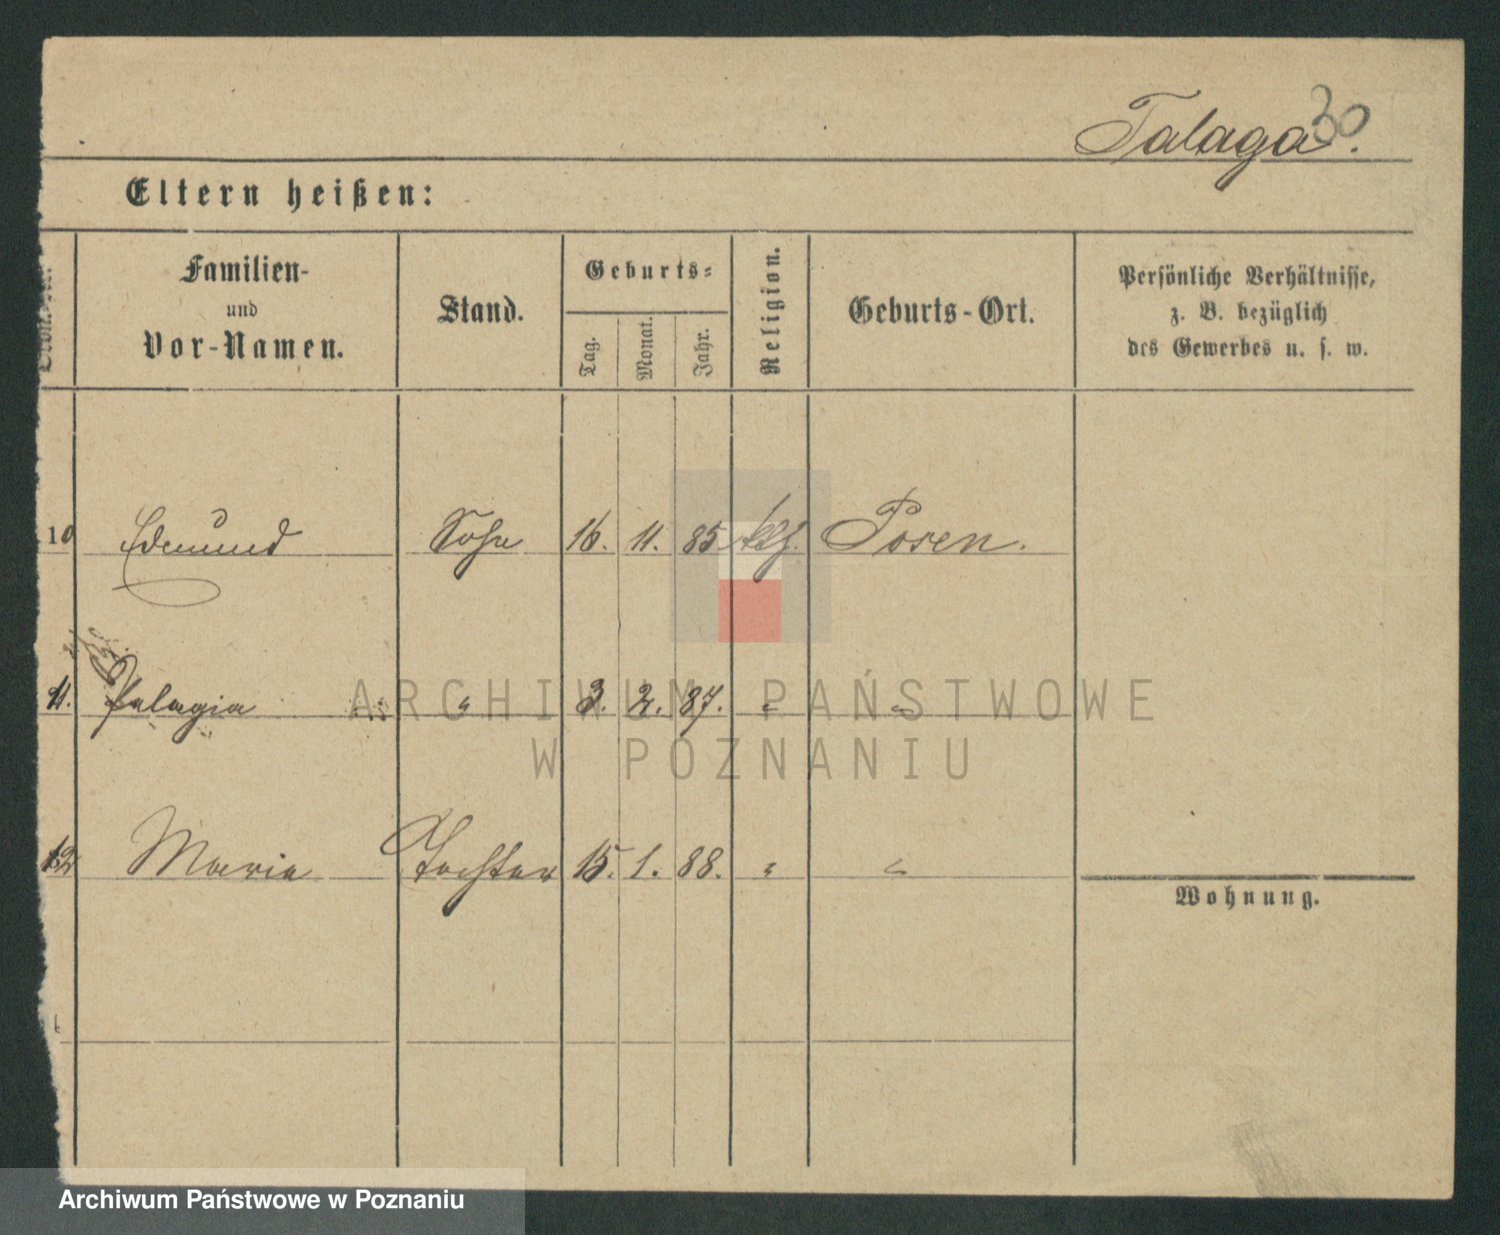 Talaga. 30
Eltern heißen:
Familien-
und
Vor-Namen.
Stand.
Geburts-
Tag.
Monat.
Jahr.
Religion.
Geburts-Ort.
Persönliche Verhältnisse,
z. B. bezüglich
des Gewerbes u. s. w.
10 Edmund Sohn 16. 11. 85 kath. Posen.
11. Pelagia " 3. 2. 87. " "
12 Maria Tochter 15. 1. 88. " "
Wohnung.
ARCHIWUM PAŃSTWOWE
W POZNANIU
Archiwum Państwowe w Poznaniu